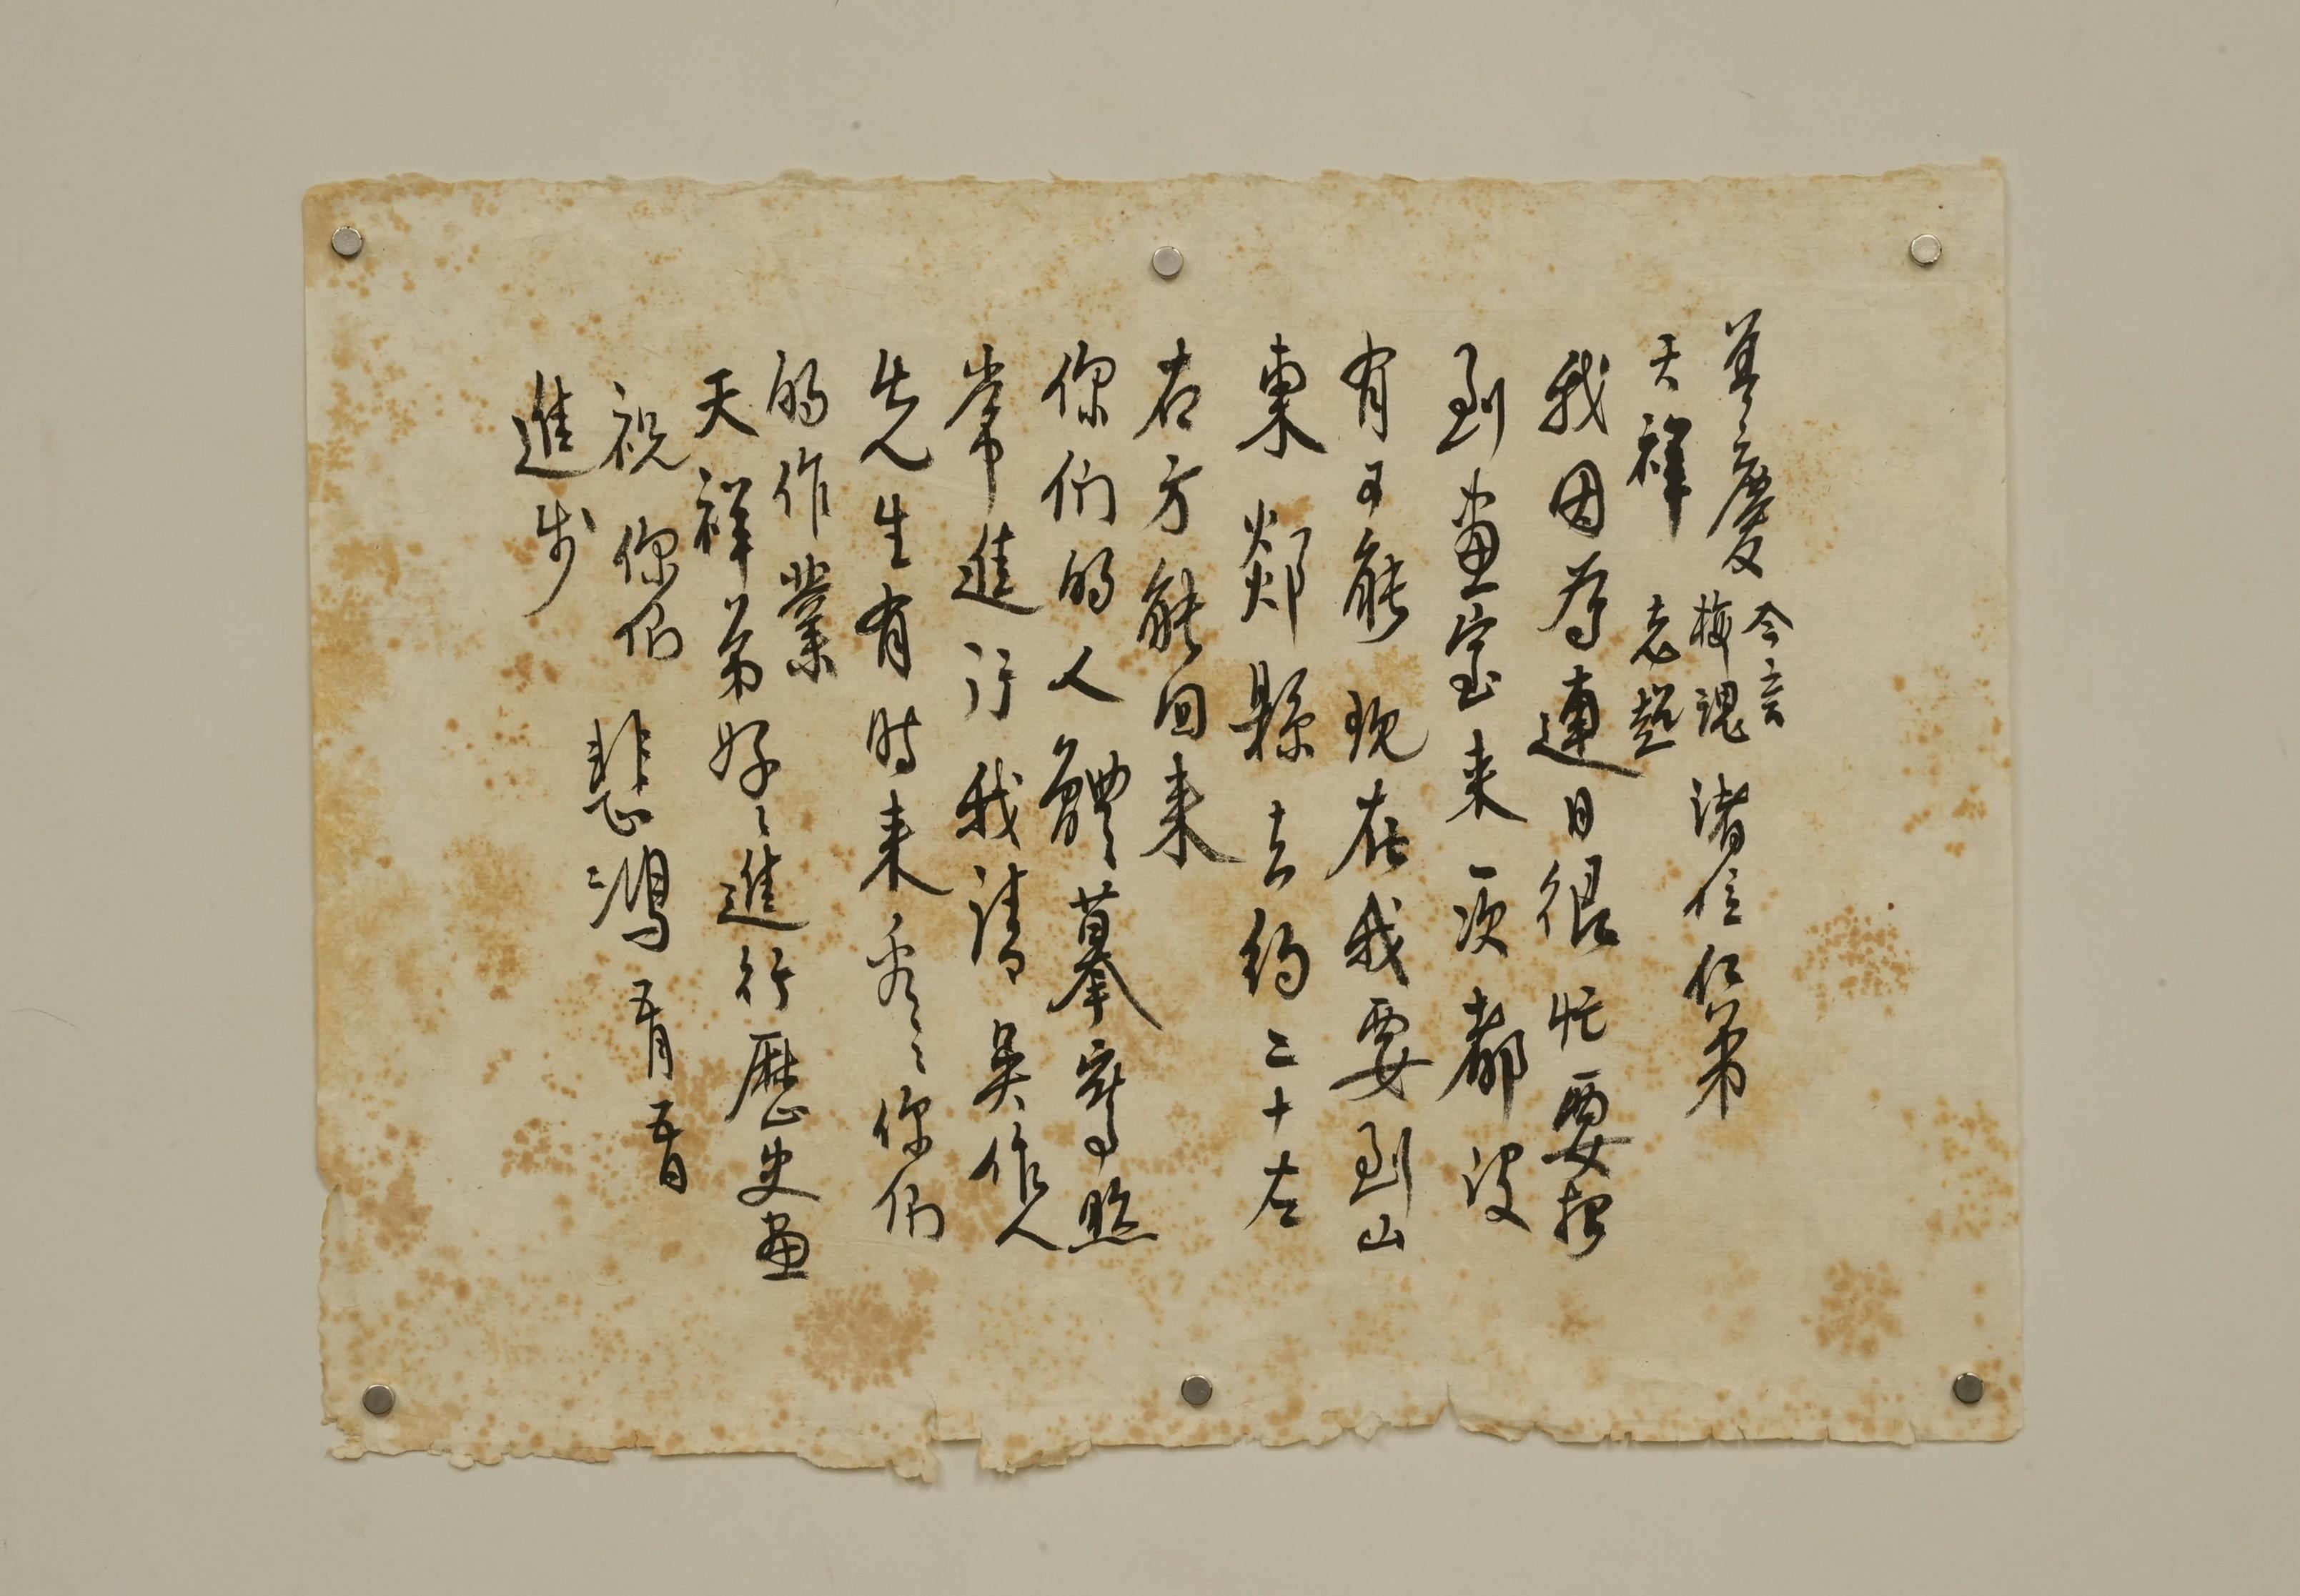 慶 令言
梅魂 諸位仁弟
天祥 志超
我因为連日很忙要想
到畫室来一次都没
有可能 现在我要到山
東郯縣去約二十左
右方能回来
你们的人體摹寫照
常進行我請吳作人
先生有时来看〻你们
的作業
天祥弟好〻進行歷史畫
祝你们
進步
悲鴻 五月五日